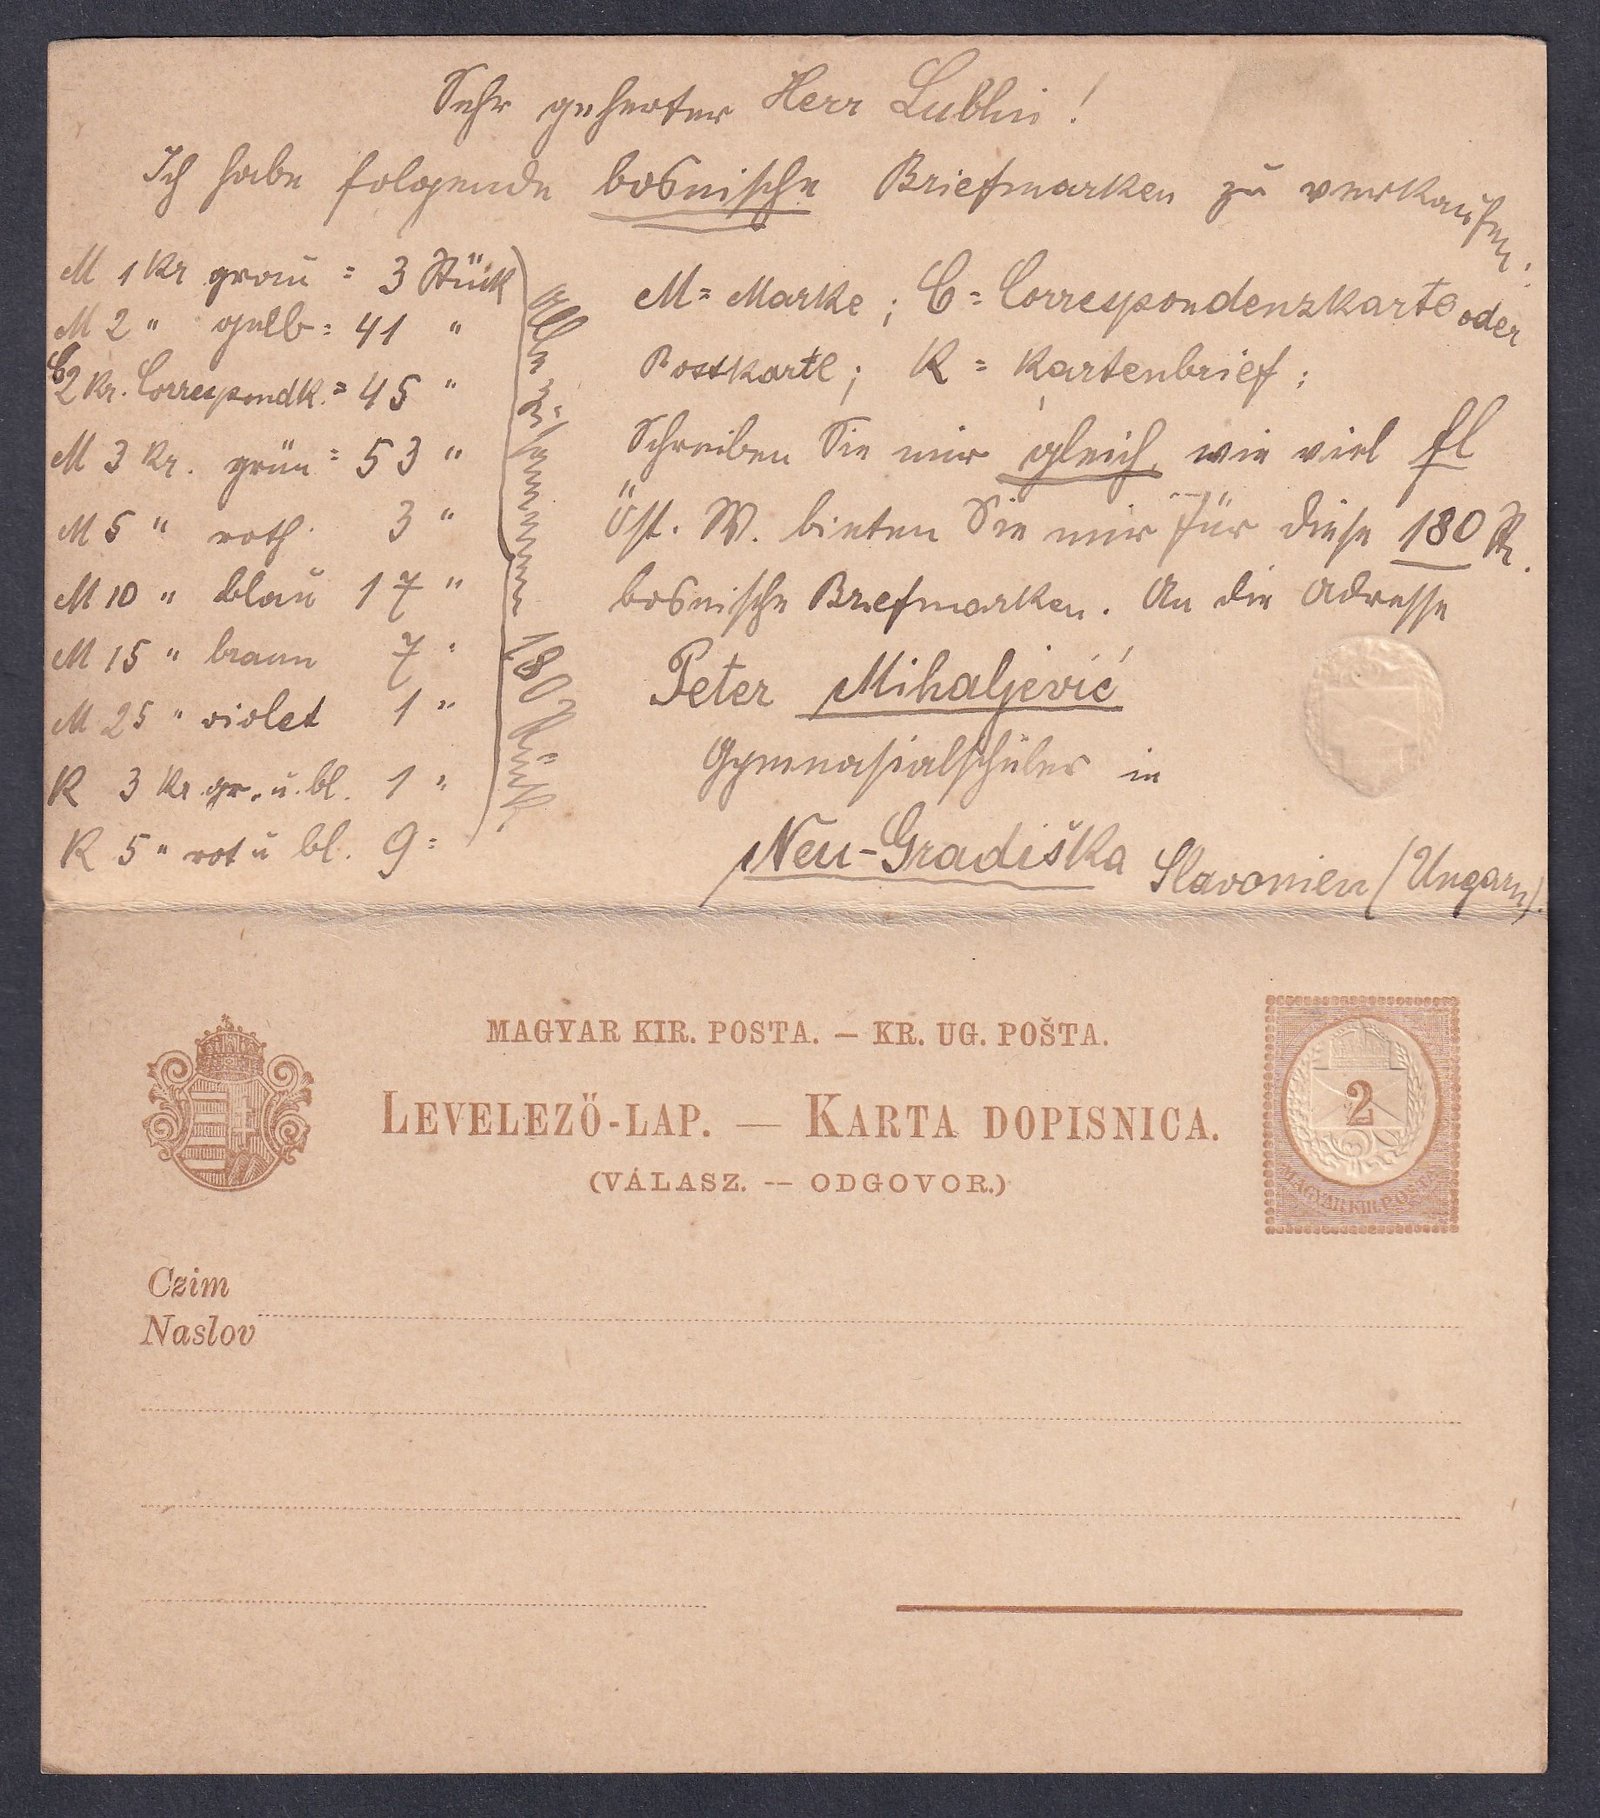 Sehr geherter Herr Lublin!
Ich habe folgende bosnische Briefmarken zu verkaufen:
M 1 Kr grau = 3 Stück
M 2 " gelb = 41 "
C 2 Kr. Correspondk. = 45 "
M 3 Kr. grün = 53 "
M 5 " roth 3 "
M 10 " blau 17 "
M 15 " braun 7 "
M 25 " violet 1 "
K 3 Kr. gr. u. bl. 1 "
K 5 " rot u bl. 9 =
alle zusammen 180 Stück.
M = Marke; C = Correspondenzkarte oder
Postkarte; K = Kartenbrief;
Schreiben Sie mir gleich, wie viel fl
Öst. W. bieten Sie mir für diese 180 St.
bosnische Briefmarken. An die Adresse
Peter Mihaljević
Gymnasialschüler in
Neu-Gradiška Slavonien (Ungarn).
MAGYAR KIR. POSTA. — KR. UG. POŠTA.
LEVELEZŐ-LAP. — KARTA DOPISNICA.
(VÁLASZ. -- ODGOVOR.)
2
MAGYAR KIR. POSTA
Czim
Naslov